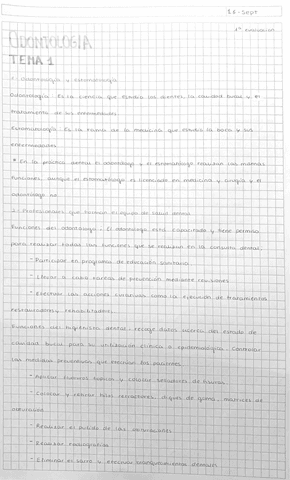 18-Sept
1ª evaluación
ODONTOLOGÍA
TEMA 1
1. Odontología y estomatología
Odontología: Es la ciencia que estudia los dientes, la cavidad bucal y el
tratamiento de las enfermedades
Estomatología: Es la rama de la medicina que estudia la boca y sus
enfermedades
* En la práctica dental el odontólogo y el estomatólogo realizan las mismas
funciones, aunque el estomatólogo es licenciado en medicina y cirugía y el
odontólogo no.
2. Profesionales que forman el equipo de salud dental
Funciones del odontólogo: El odontólogo está capacitado y tiene permiso
para realizar todas las funciones que se realizan en la consulta dental.
- Participar en programa de educación sanitaria
- Llevar a cabo tareas de prevención mediante revisiones
- Efectuar las acciones curativas como la ejecución de tratamientos
restauradores, rehabilitadores.
Funciones del higienista dental: recoge datos acerca del estado de
cavidad bucal para la utilización clínica o epidemiológica. Controlar
las medidas preventivas que efectúan los pacientes.
- Aplicar fluoruros tópicos y colocar selladores de fisuras
- Colocar y retirar hilos retractores, diques de goma, matrices de
obturación
- Realizar el pulido de las obturaciones
- Realizar radiografías
- Eliminar el sarro y efectuar blanqueamientos dentales